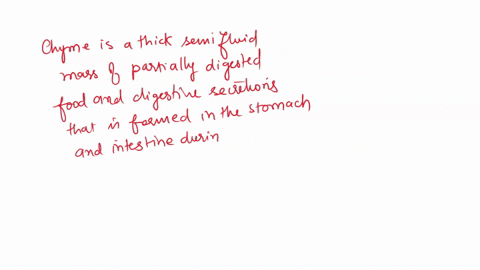 Chyme is a thick semifluid
mass of partially digested
food and digestive secretions
that is formed in the stomach
and intestine durin